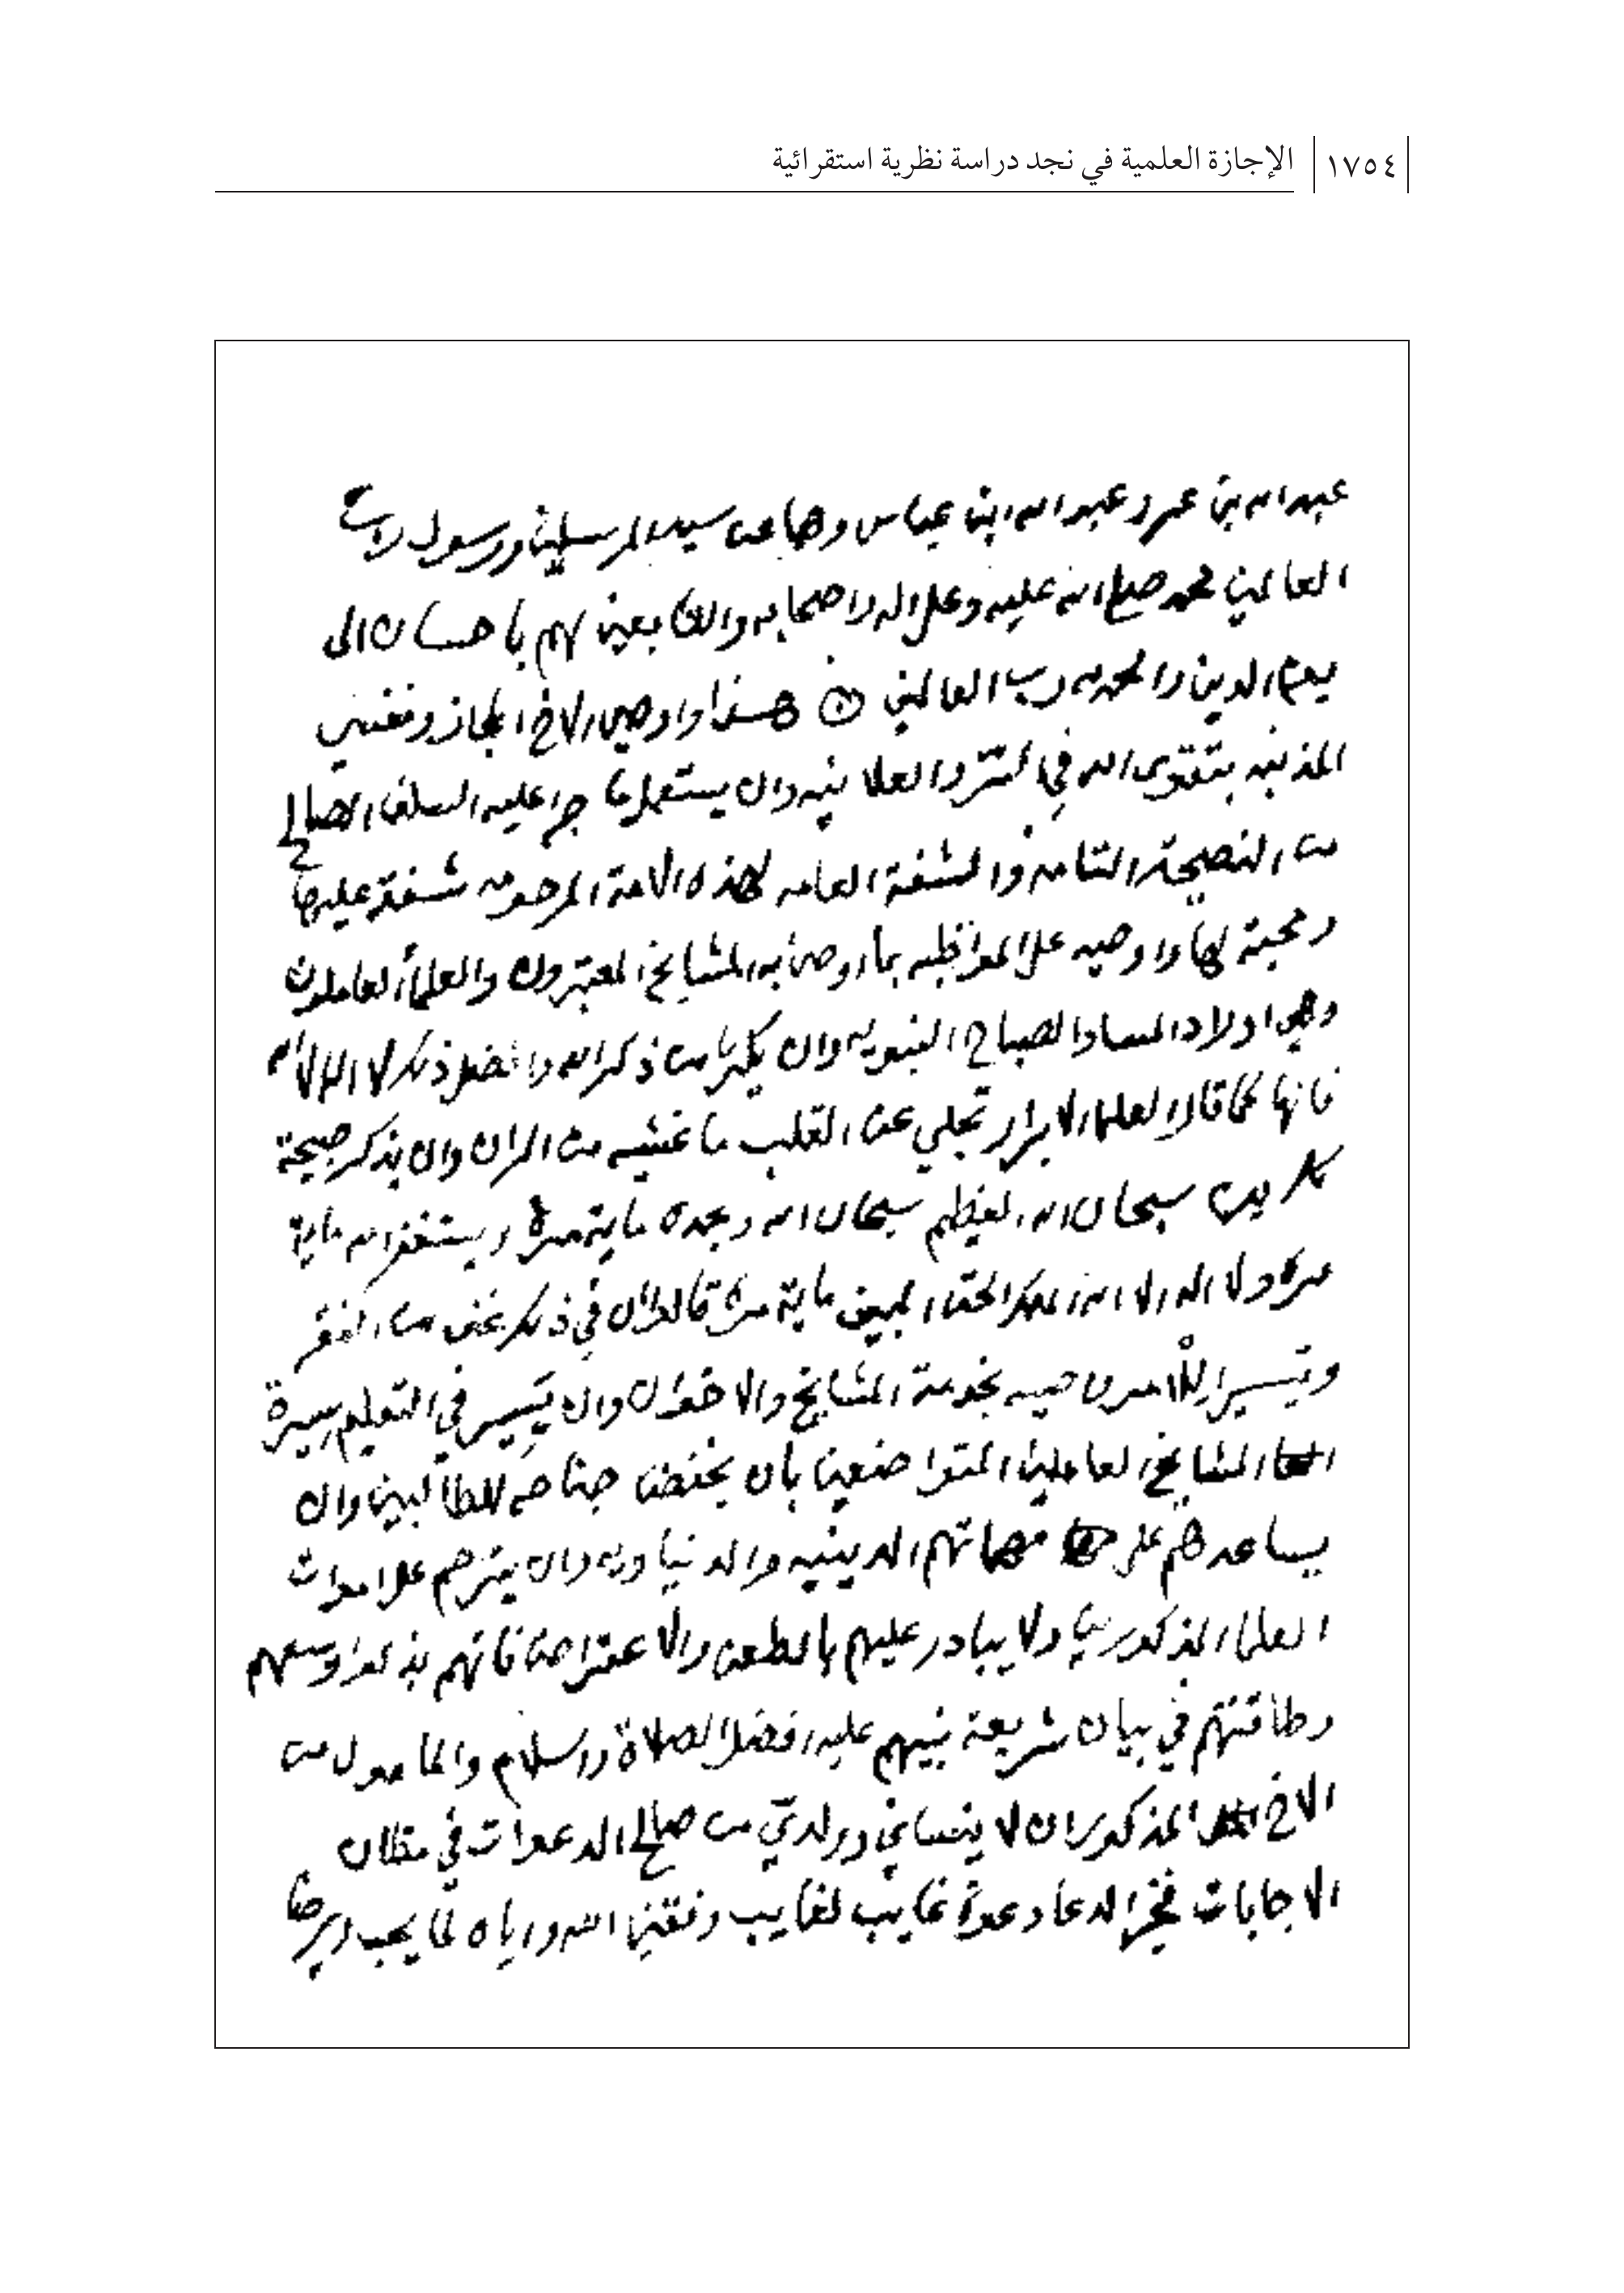 ١٧٥٤ الإجازة العلمية في نجد دراسة نظرية استقرائية
عبد الله بن عمر وعبد الله ابن عباس وهما عن سيد المرسلين ورسول رب
العالمين محمد صلى الله عليه وعلى اله واصحابه والتابعين لهم باحسان الى
يوم الدين والحمد لله رب العالمين هذا واوصي الاخ المجاز ونفسي
المذنبه بتقوى الله في السر والعلانيه وان يستعمل ما جرا عليه السلف الصالح
من النصيحة التامه والشفقة العامه لهذه الامة المرحومه شفقة عليها
ومحبة لها واوصيه على المواظبه بما اوصا به المشايخ المعتبرون والعلماء العاملون
وهي اوراد المسا والصباح النبويه وان يكثر من ذكر الله وافضل ذلك لا اله الا الله
فانها كما قال العلما الابرار تجلي عن القلب ما غشيه من الران وان يذكر صبيحة
كل يوم سبحان الله العظيم سبحان الله وبحمده ماية مرة ويستغفر الله ماية
مرة ولا اله الا الله الملك الحق المبين ماية مرة قالوا ان في ذلك غنى من الفقر
وتيسيرا للامر وصيه بخدمة المشايخ والاخوان وان يسير في التعليم سيرة
المشايخ العاملين المتواضعين بأن يخفض جناحه للطالبين وان
يساعدهم على مهماتهم الدينيه والدنياويه وان يترحم على اموات
العلما المذكورين ولا يبادر عليهم بالطعن والاعتراض فانهم بذلوا وسعهم
وطاقتهم في بيان شريعة نبيهم عليه افضل الصلاة والسلام والمامول من
الاخ المذكور ان لا ينساني ووالدي من صالح الدعوات في مظان
الاجابات فخير الدعا دعوة غايب لغايب وفقني الله واياه لما يحب ويرضا